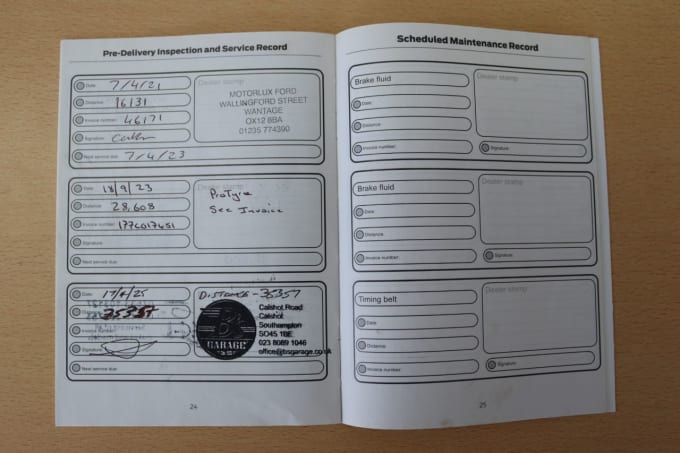 Pre-Delivery Inspection and Service Record
Date: 7/4/21
Distance: 16131
Invoice number: 46171
Signature:
Next service due: 7/4/23
Dealer stamp
MOTORLUX FORD
WALLINGFORD STREET
WANTAGE
OX12 8BA
01235 774390
Date: 18/9/23
Distance: 28,608
Invoice number: 177C017651
Signature:
Next service due:
ProTyre
See Invoice
Date: 17/4/25
35357
Invoice number:
Signature:
Next service due:
DISTANCE - 35357
B'S
GARAGE
Calshot Road
Calshot
Southampton
SO45 1BE
023 8089 1046
office@bsgarage.co.uk
24
Scheduled Maintenance Record
Brake fluid
Date:
Distance:
Invoice number:
Dealer stamp
Signature:
Brake fluid
Date:
Distance:
Invoice number:
Dealer stamp
Signature:
Timing belt
Date:
Distance:
Invoice number:
Dealer stamp
Signature:
25